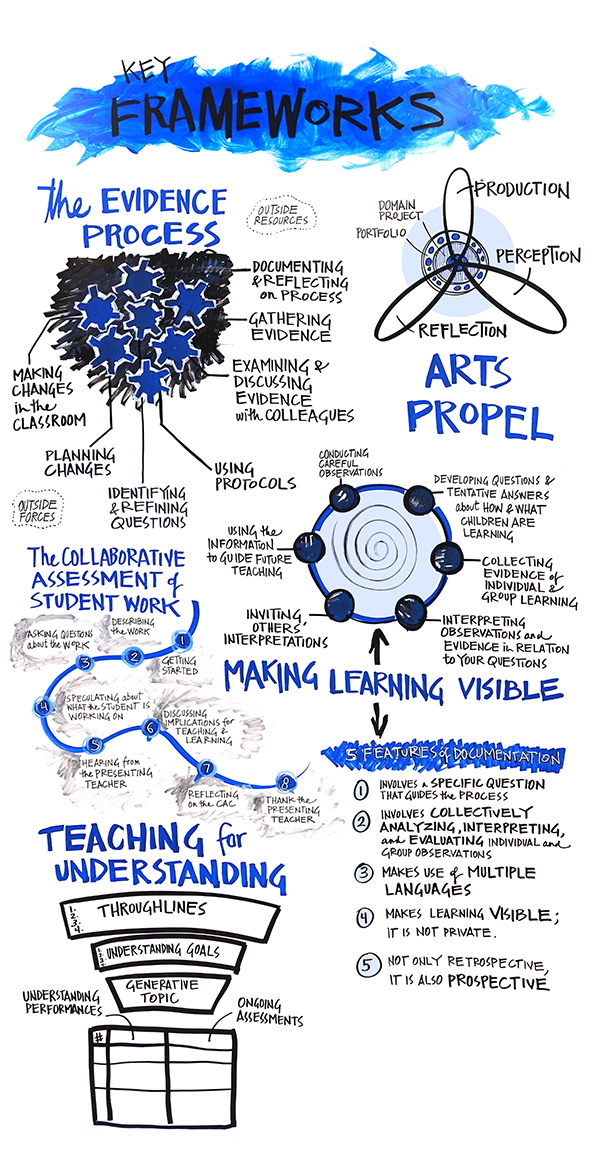 KEY
FRAMEWORKS
the EVIDENCE
PROCESS
OUTSIDE
RESOURCES
DOCUMENTING
& REFLECTING
on PROCESS
GATHERING
EVIDENCE
EXAMINING &
DISCUSSING
EVIDENCE
with COLLEAGUES
USING
PROTOCOLS
IDENTIFYING
& REFINING
QUESTIONS
PLANNING
CHANGES
MAKING
CHANGES
in the
CLASSROOM
OUTSIDE
FORCES
PRODUCTION
DOMAIN
PROJECT
PORTFOLIO
PERCEPTION
REFLECTION
ARTS
PROPEL
The COLLABORATIVE
ASSESSMENT of
STUDENT WORK
1
GETTING
STARTED
DESCRIBING
the WORK
2
ASKING QUESTIONS
about the WORK
3
4
SPECULATING about
WHAT the STUDENT IS
WORKING ON
5
HEARING from
the PRESENTING
TEACHER
6
DISCUSSING
IMPLICATIONS for
TEACHING &
LEARNING
7
REFLECTING
on the CAC
8
THANK the
PRESENTING
TEACHER
CONDUCTING
CAREFUL
OBSERVATIONS
DEVELOPING QUESTIONS &
TENTATIVE ANSWERS
about HOW & WHAT
CHILDREN ARE
LEARNING
COLLECTING
EVIDENCE of
INDIVIDUAL &
GROUP LEARNING
INTERPRETING
OBSERVATIONS and
EVIDENCE in RELATION
to YOUR QUESTIONS
INVITING
OTHERS'
INTERPRETATIONS
USING the
INFORMATION
to GUIDE FUTURE
TEACHING
MAKING LEARNING VISIBLE
5 FEATURES of DOCUMENTATION
1 INVOLVES a SPECIFIC QUESTION
THAT GUIDES the PROCESS
2 INVOLVES COLLECTIVELY
ANALYZING, INTERPRETING,
and EVALUATING INDIVIDUAL and
GROUP OBSERVATIONS
3 MAKES USE of MULTIPLE
LANGUAGES
4 MAKES LEARNING VISIBLE;
IT IS NOT PRIVATE.
5 NOT ONLY RETROSPECTIVE,
IT IS ALSO PROSPECTIVE
TEACHING for
UNDERSTANDING
1.
2.
3.
4.
THROUGHLINES
1.
2.
3.
UNDERSTANDING GOALS
GENERATIVE
TOPIC
UNDERSTANDING
PERFORMANCES
ONGOING
ASSESSMENTS
#